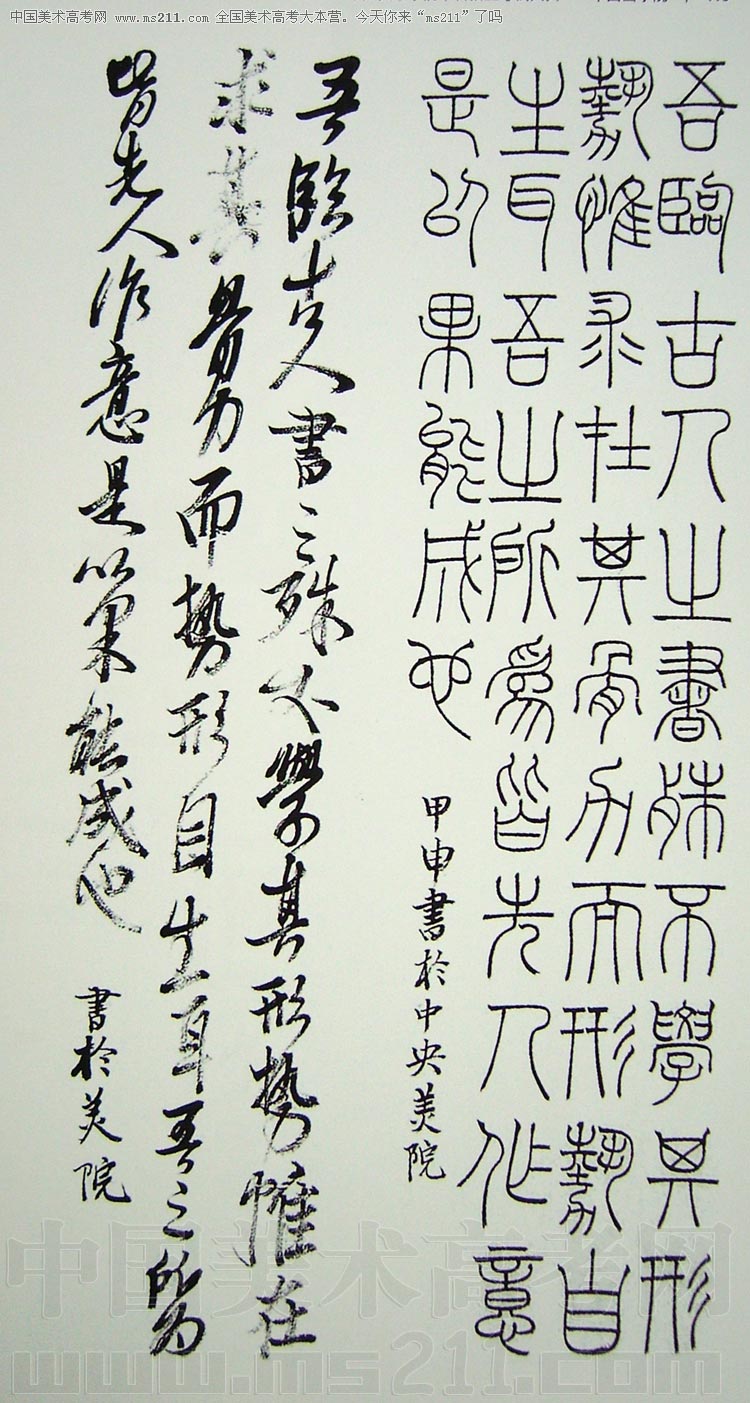 中国美术高考网 www.ms211.com 全国美术高考大本营。今天你来“ms211”了吗
吾臨古人之書殊不學其形
勢惟求在其骨力而形勢自
生耳吾之所爲皆先人作意
是以果能成也
甲申書於中央美院
吾臨古人書之殊不學其形勢惟在
求其骨力而勢形自生耳吾之所為
皆先人作意是以果能成也
書於美院
中国美术高考网
www.ms211.com